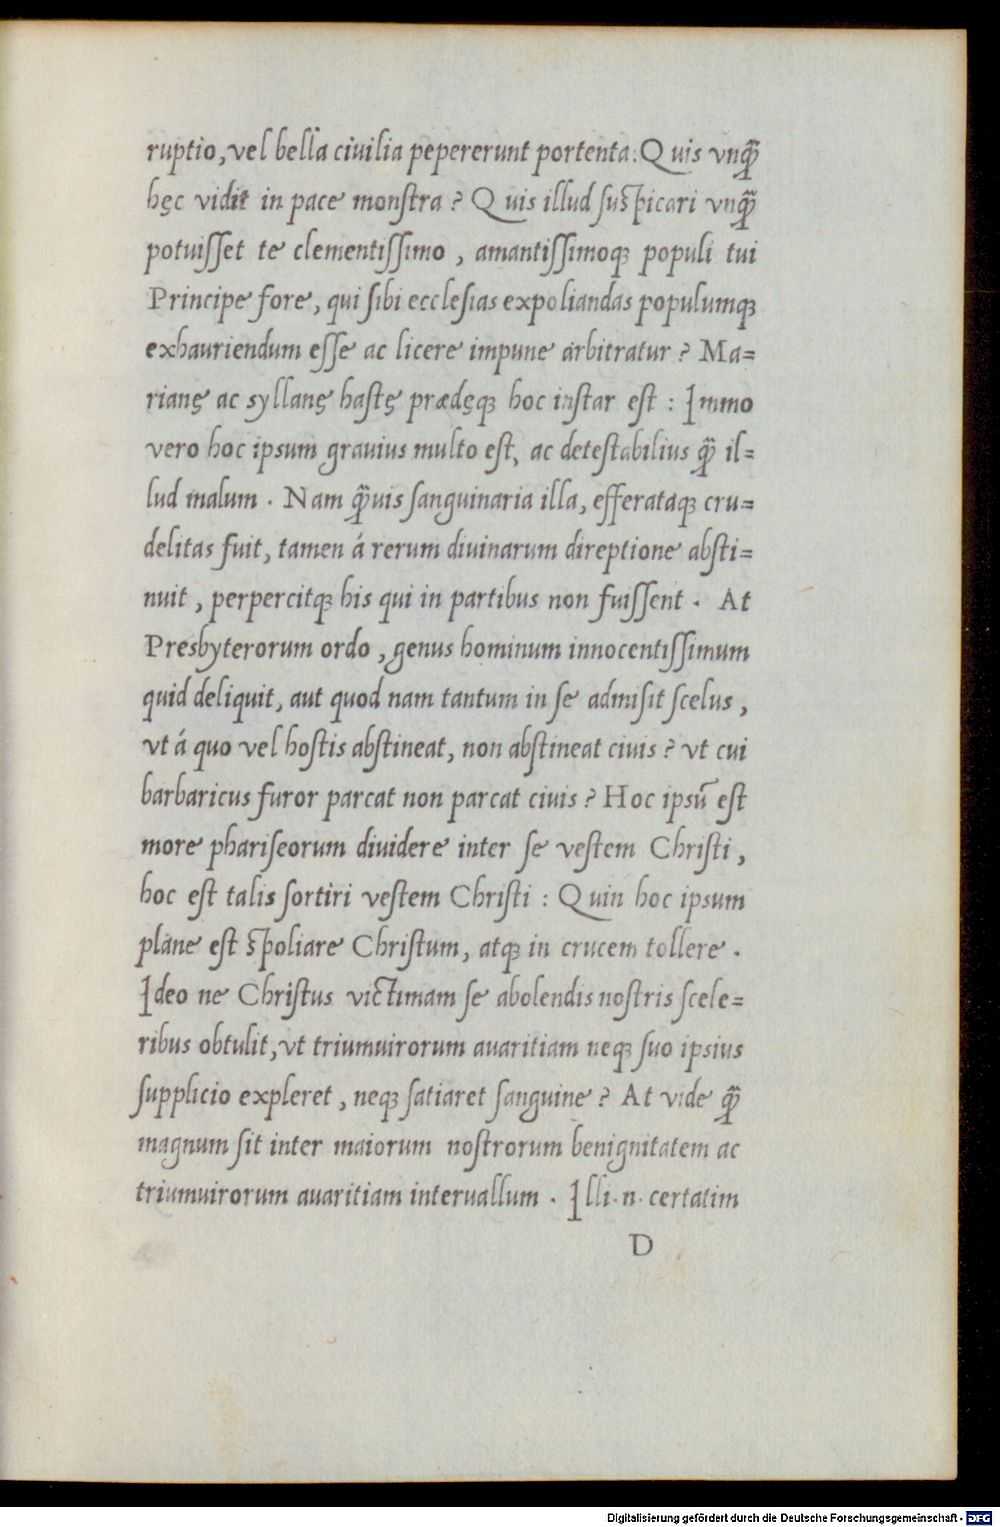 ruptio, vel bella ciuilia pepererunt portenta: Quis vnq̃
hęc vidit in pace monſtra? Quis illud ſuſpicari vnq̃
potuiſſet te clementiſſimo, amantiſſimoqꝫ populi tui
Principe fore, qui ſibi eccleſias expoliandas populumqꝫ
exhauriendum eſſe ac licere impune arbitratur? Ma=
rianę ac syllanę haſtę prædęqꝫ hoc inſtar eſt: Immo
vero hoc ipsum grauius multo eſt, ac deteſtabilius q̃ il=
lud malum. Nam q̃uis ſanguinaria illa, efferataqꝫ cru=
delitas fuit, tamen á rerum diuinarum direptione abſti=
nuit, perpercitqꝫ his qui in partibus non fuiſſent. At
Presbyterorum ordo, genus hominum innocentiſſimum
quid deliquit, aut quod nam tantum in ſe admiſit ſcelus,
vt á quo vel hoſtis abſtineat, non abſtineat ciuis? vt cui
barbaricus furor parcat non parcat ciuis? Hoc ipsū eſt
more phariſeorum diuidere inter ſe veſtem Chriſti,
hoc eſt talis ſortiri veſtem Chriſti: Quin hoc ipsum
plane eſt ſpoliare Chriſtum, atqꝫ in crucem tollere.
Ideo ne Chriſtus victimam ſe abolendis noſtris ſcele=
ribus obtulit, vt triumuirorum auaritiam neqꝫ ſuo ipsius
ſupplicio expleret, neqꝫ ſatiaret ſanguine? At vide q̃
magnum ſit inter maiorum noſtrorum benignitatem ac
triumuirorum auaritiam interuallum. Illi .n. certatim
D
Digitalisierung gefördert durch die Deutsche Forschungsgemeinschaft - DFG